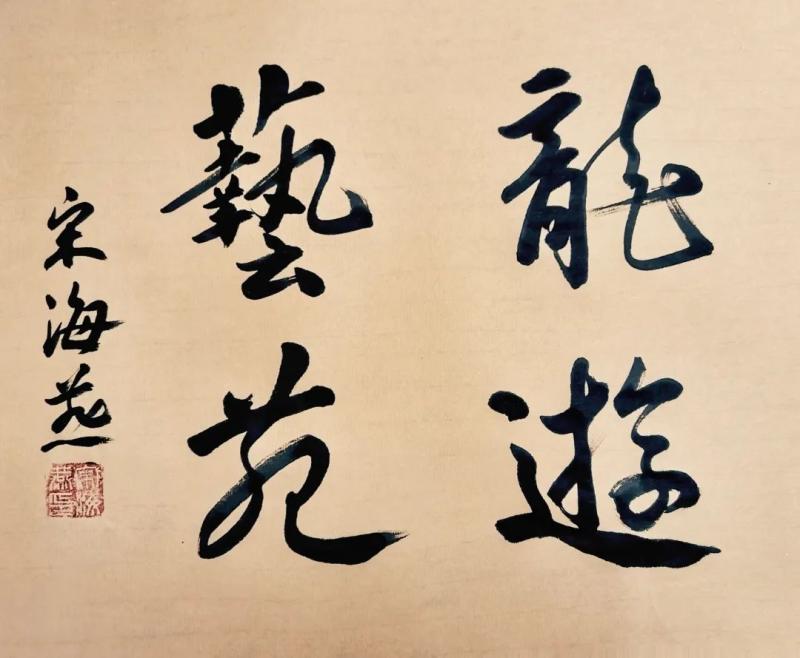 龍遊
藝苑
宋海燕